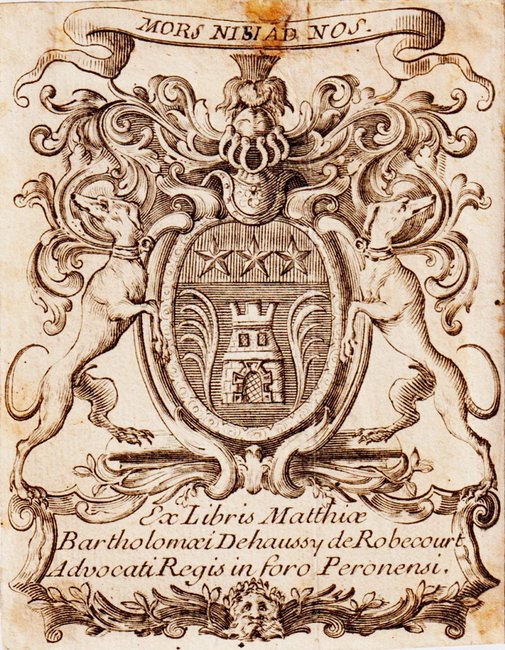 MORS NISI AD NOS.
Ex Libris Matthiæ
Bartholomæi Dehaussy de Robecourt
Advocati Regis in foro Peronensi.